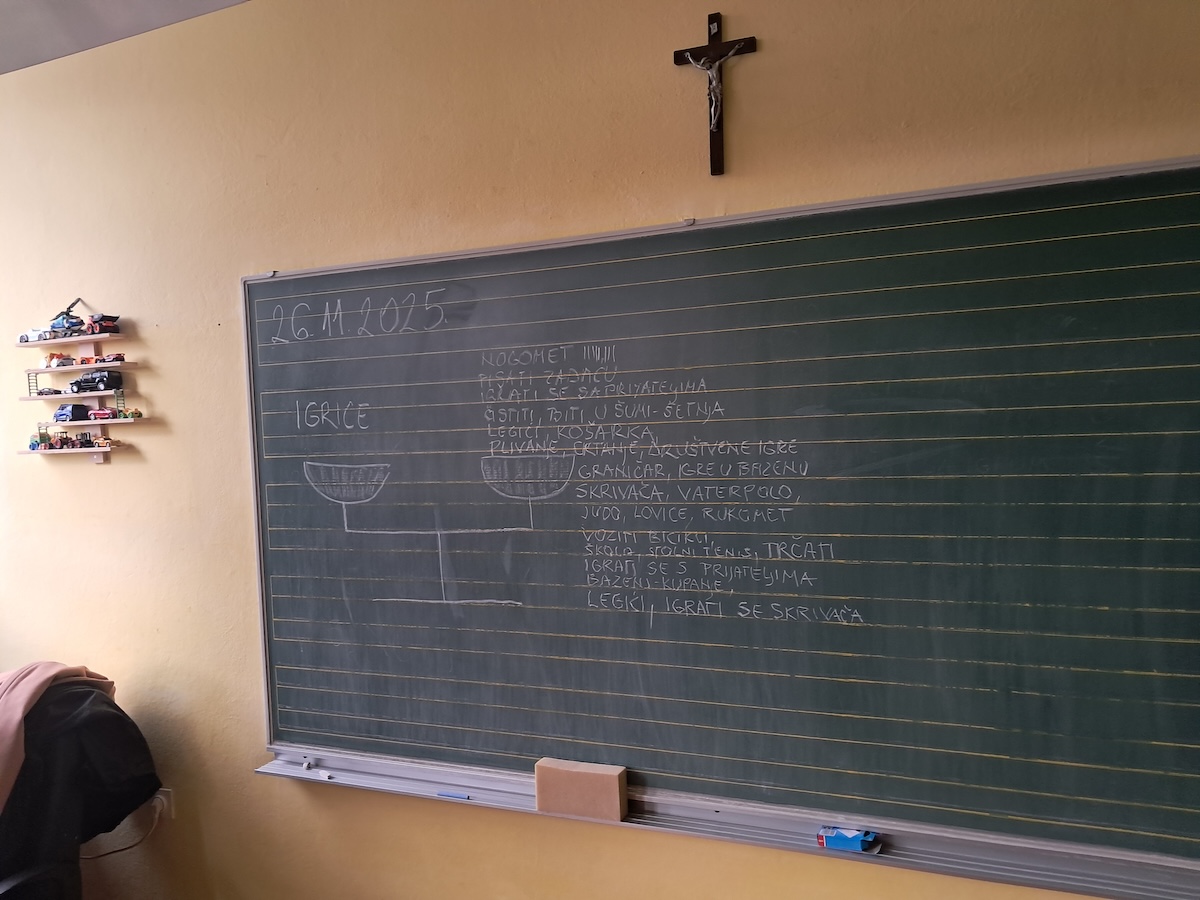 26.11.2025.
IGRICE
NOGOMET
PISATI ZADAĆU
IGRATI SE SA PRIJATELJIMA
ČISTITI, IĆI U ŠUMI-ŠETNJA
LEGIĆI, KOŠARKA,
PLIVANJE, CRTANJE, DRUŠTVENE IGRE
GRANIČAR, IGRE U BAZENU
SKRIVAČA, VATERPOLO,
JUDO, LOVICE, RUKOMET
VOZITI BICIKL,
ŠKOLA, STOLNI TENIS, TRČATI
IGRATI SE S PRIJATELJIMA
BAZENI-KUPANJE,
LEGIĆI, IGRATI SE SKRIVAČA